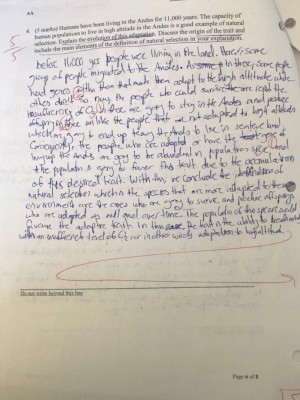 AA
6. (5 marks) Humans have been living in the Andes for 11,000 years. The capacity of
human populations to live in high altitude in the Andes is a good example of natural
selection. Explain the evolution of this adaptation. Discuss the origin of the trait and
include the main elements of the definition of natural selection in your explanation.
5
5
before 11,000 yrs people were living in the land. there's some
group of people migrated to the Andes. In these some people
had genes within them that made them adapt to the high altitude while
others don't. So now the people who could survive there are the
insufficiency of O2 there are going to stay in the Andes and produce
offsprings there unlike the people that are not adapted to high altitude
which are going to end up leaving the Andes to live in
Consequently, the people who are adapted or have the gene of
living up the Andes are going to be abundant in population size and
the population is going to favor this trait due to the accumulation
of this desired trait. With this, we conclude the definition of
natural selection which is the species that are more adapted to the
environment are the ones who are going to survive and produce offsprings
who are adapted as well and over time. The population of the species would
favour the adaptive trait. In this case, the trait is the ability to
with an insufficient level of O2 or in other words adaptation to high altitude.
Do not write beyond this line
Page 6 of 8